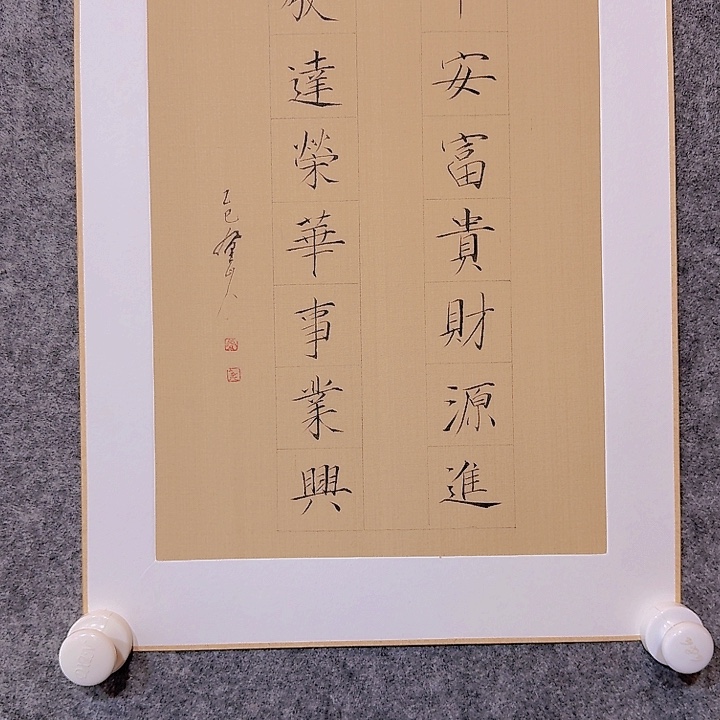 安富貴財源進
達榮華事業興
乙巳